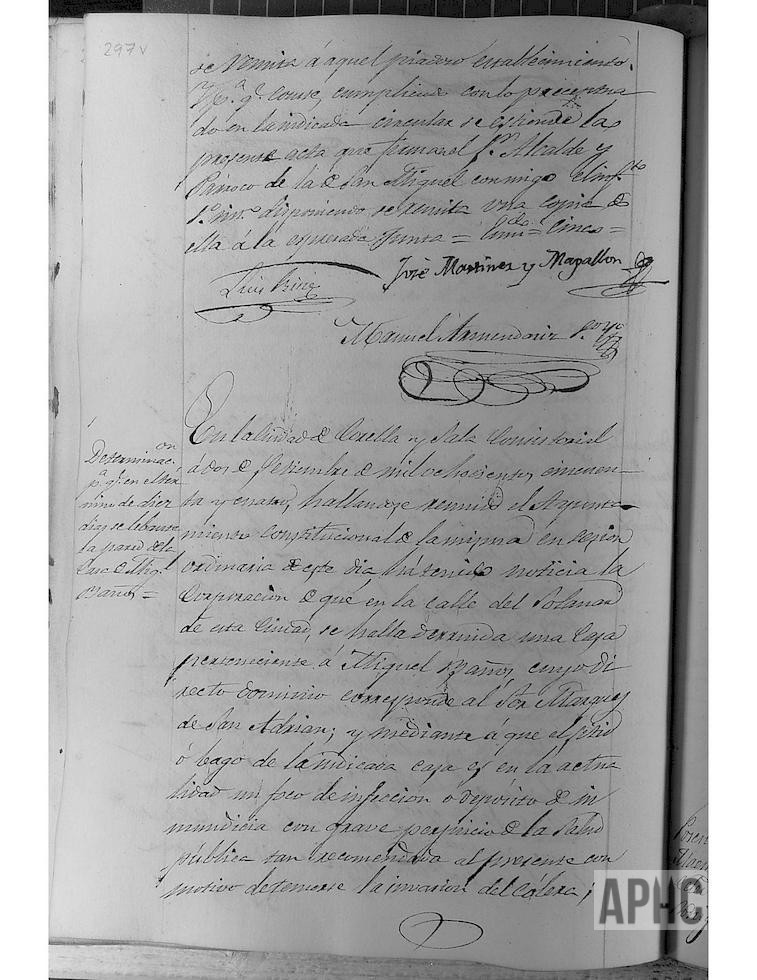 297v
se remita á aquel piadoso establecimiento.
Y p.ª q.e conste, cumpliendo con lo preceptua
do en la indicada circular se estiende la
presente acta que firma el S.r Alcalde y
Párroco de la de San Miguel conmigo el inf.to
S.º int.º disponiendo se remita una copia de
ella á la espresada Junta = Cinco =
Luis
José Martinez y Magallon
Manuel Armendariz
En la Ciudad de Corella y Sala Consistorial
á dos de Setiembre de mil ochocientos cincuen-
ta y cuatro, hallandose reunido el Ayunta-
miento Constitucional de la misma en sesion
ordinaria de este dia, ha tenido noticia la
Corporacion de que en la calle del
de esta Ciudad, se halla derruida una Casa
perteneciente á Miguel Baños, cuyo di
recto dominio corresponde al Sor Marques
de San Adrian; y mediante á que el sitio
ó bago de la indicada casa es en la actua
lidad un foco de infeccion ó deposito de in
mundicia con grave perjuicio de la Salud
pública tan recomendada al presente con
motivo de temerse la invasion del colera;
Determinaci.on
p.ª q.e en el tér
mino de diez
dias se lebante
la pared de la
Casa de Mig.l
Baños =
APHC